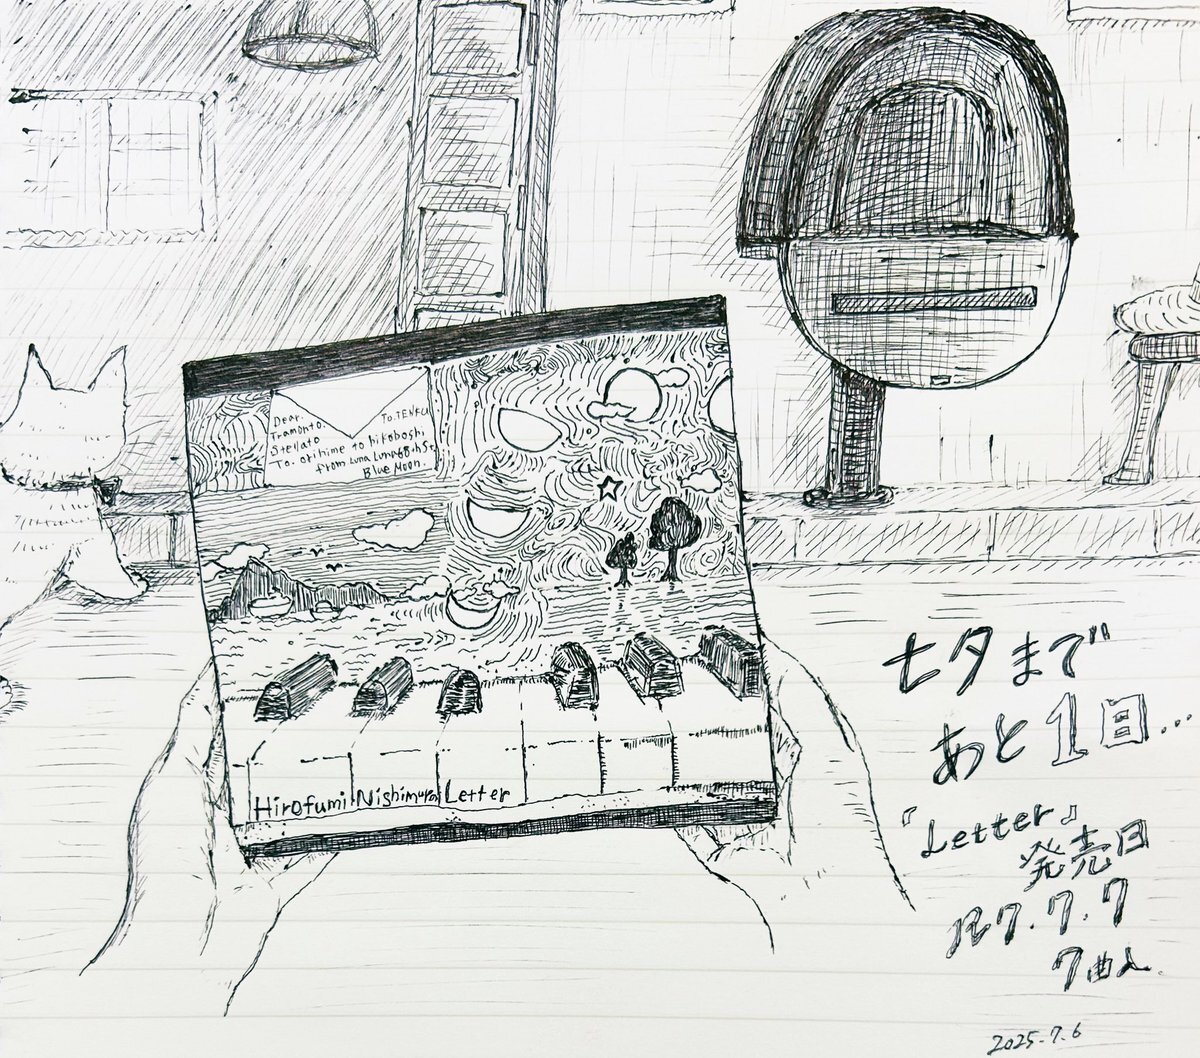 Dear.
Tramonto.
Stellato
To. orihime to hikoboshi
from Luna Luna68thSt
Blue Moon.
To.TENKU
Hirofumi Nishimura Letter
七夕まで
あと1日...
『Letter』
発売日
R7.7.7
7曲入.
2025.7.6